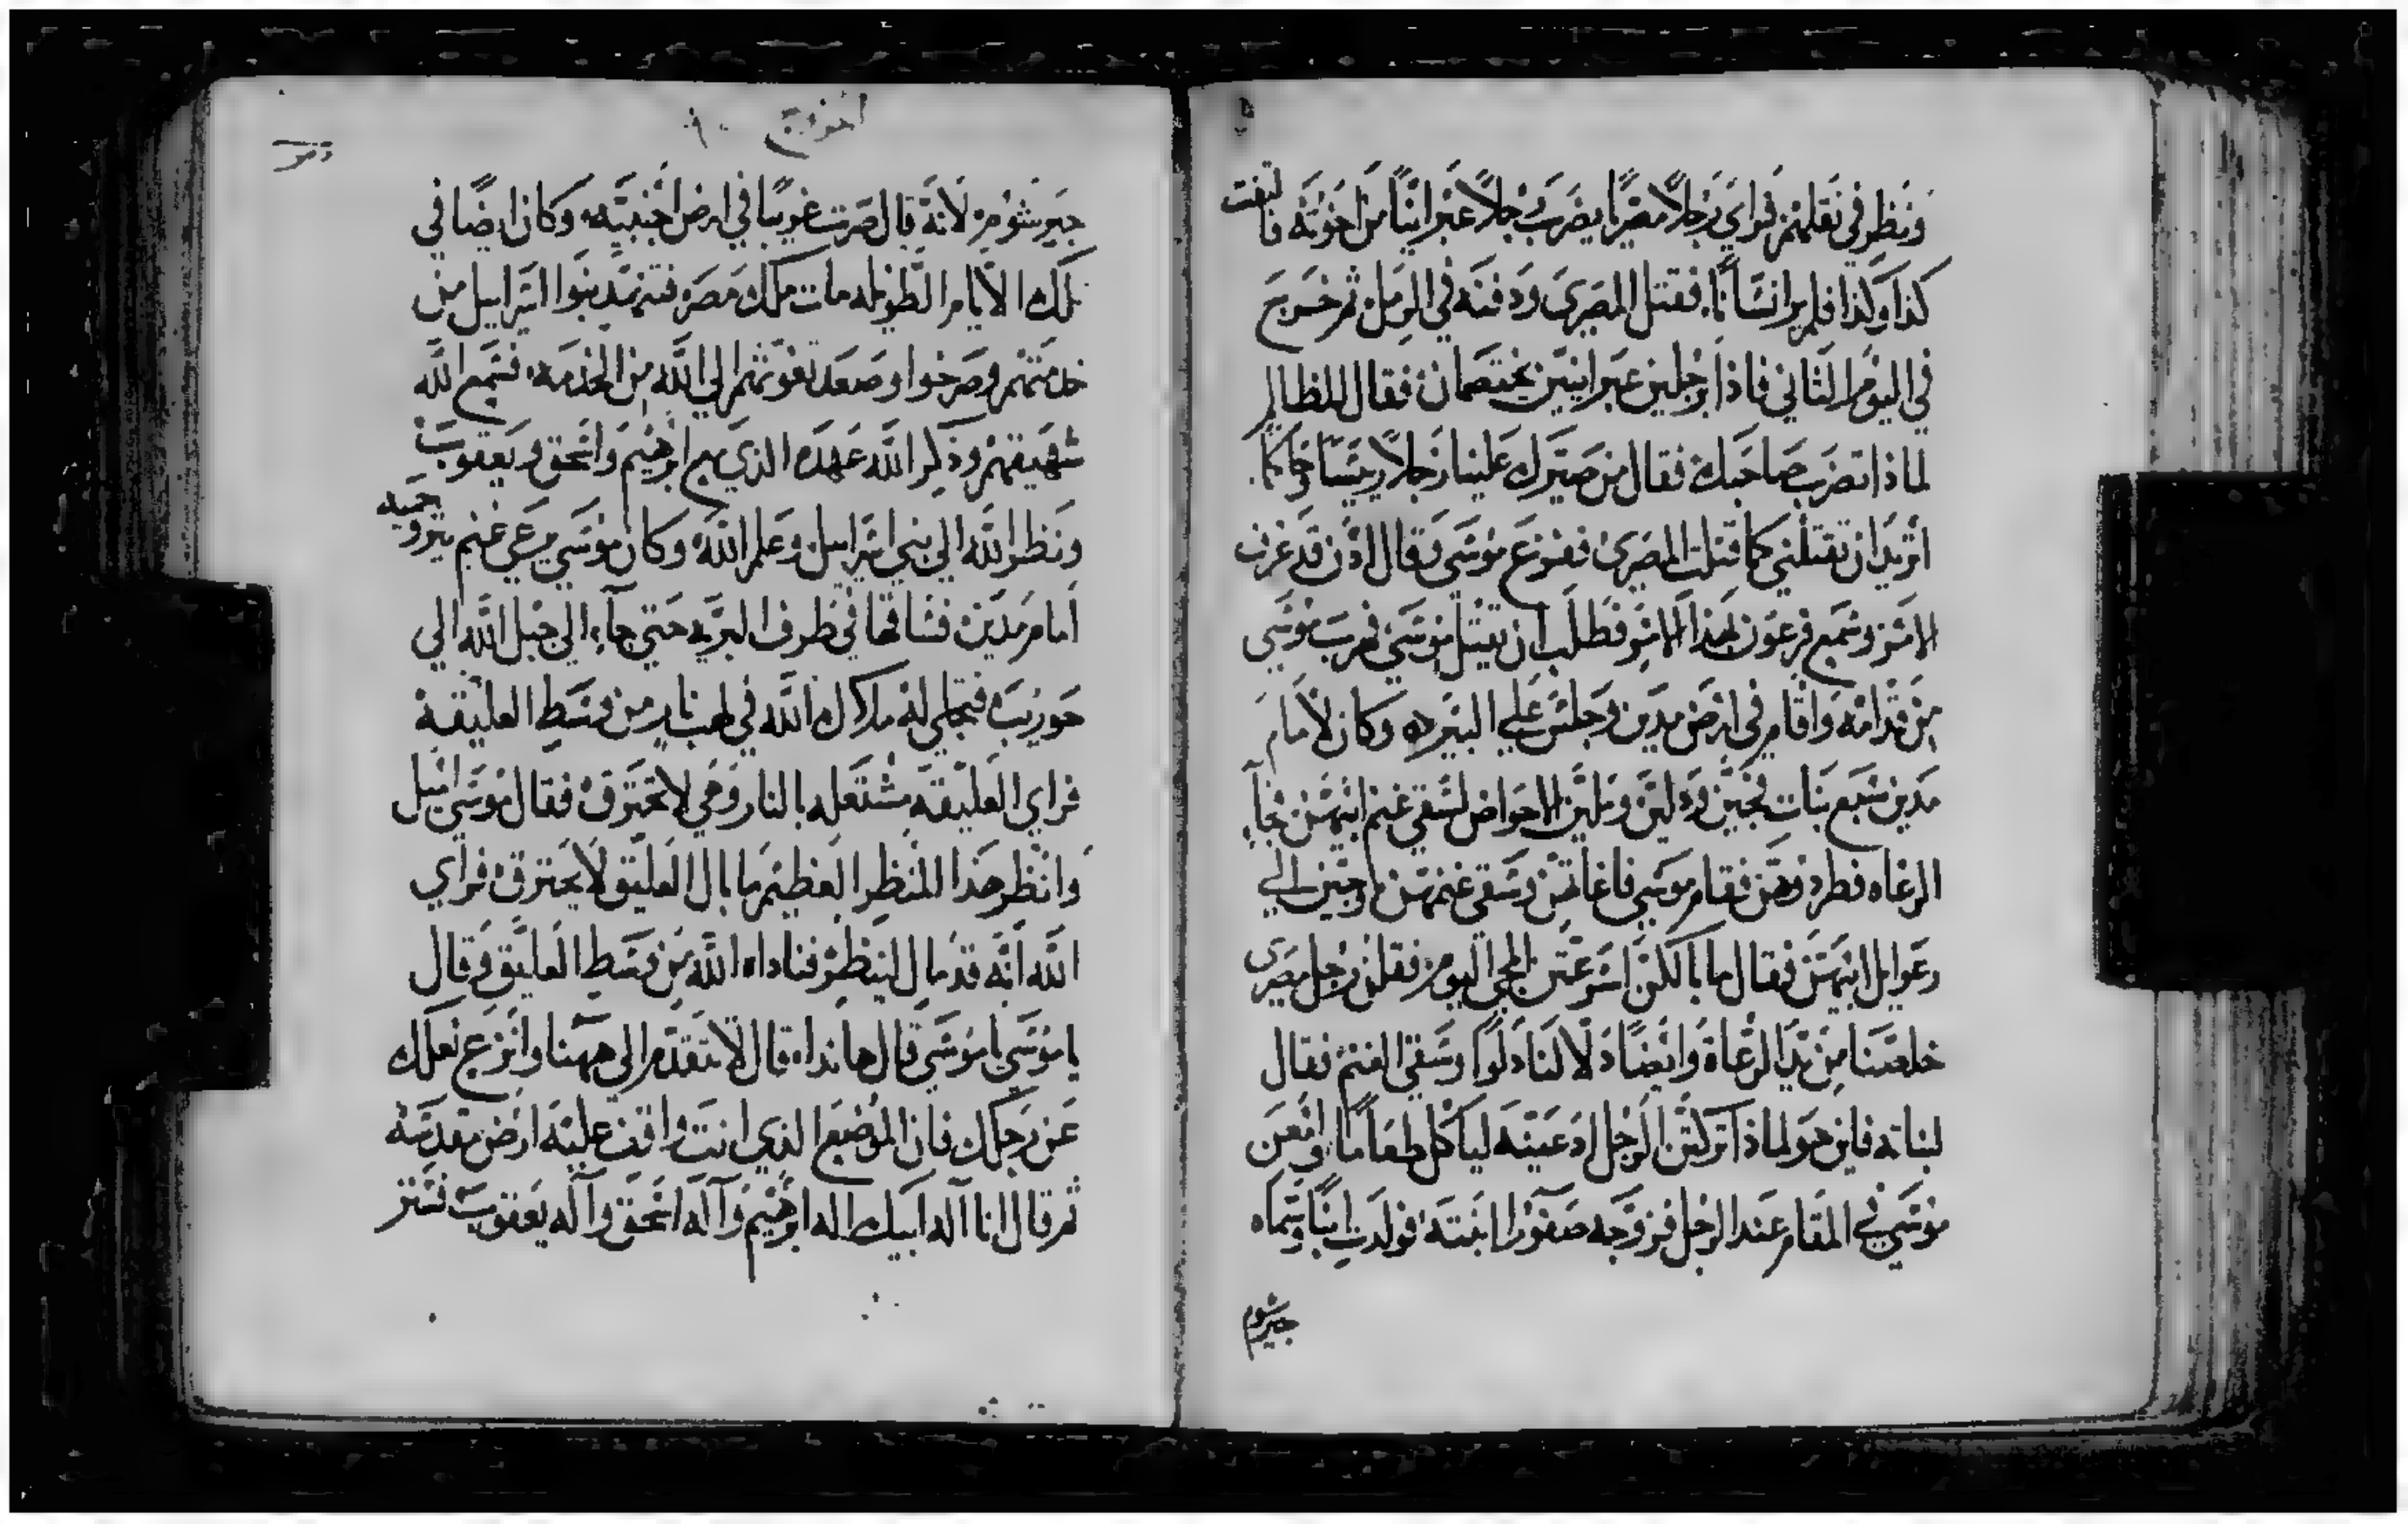 ونظر في ثقلهم فراي رجلاً مصريًا يضرب رجلاً عبرانيًا من اخوته فالتفت
كذا وكذا فلم ير انسانًا. فقتل المصري ودفنه في الرمل ثم خرج
في اليوم الثاني فاذا برجلين عبرانيين يختصمان فقال للظالم
لماذا تضرب صاحبك فقال من صيرك علينا رجلاً رييسًا وحاكمًا.
اتريد ان تقتلني كما قتلت المصري ففزع موسي وقال اذن قد عرف
الامر وسمع فرعون بهذا الامر فطلب ان يقتل موسي فهرب موسي
من قدامه واقام في ارض مدين وجلس علي البير وكان لامام
مدين سبع بنات فجين ودلين وملين الاحواض لسقي غنم ابيهن فجاء
الرعاه فطردوهن فقام موسي فاغاثهن وسقي غنمهن وجين الي
رعوايل ابيهن فقال ما بالكن اسرعتن المجي اليوم فقلن رجل مصري
خلصنا من يد الرعاة وايضًا دلا لنا دلوًا وسقي الغنم فقال
لبناته فاين هو لماذا تركتن الرجل ادعينه لياكل طعامًا وامعن
موسي في المقام عند الرجل فزوجه صفورا ابنته فولدت ابنًا وسماه
جيرشوم
اخروج ١٠
جيرشوم لانه قال صرت غريبًا في ارض اجنبيه وكان ايضًا في
تلك الايام الطويله مات ملك مصر فتنهد بنوا اسراييل من
خدمتهم وصرخوا وصعد تغوثهم الي الله من الخدمه فسمع الله
شهيقهم وذكر الله عهده الذي مع ابرهيم واسحق ويعقوب
ونظر الله الي بني اسراييل وعلم الله وكان موسي يرعي غنم يثرو حميه
امام مدين فساقها في طرف البريه حتي جاء الي جبل الله الي
حوريب فتجلي له ملاك الله في لهب نار من وسط العليقة
فراي العليقه مشتعله بالنار وهي لا تحترق فقال موسي اميل
وانظر هذا المنظر العظيم ما بال العليق لا يحترق فراي
الله انه قد مال لينظر فناداه الله من وسط العليق وقال
يا موسي يا موسي قال هانذا قال لا تتقدم الي ههنا وانزع نعلك
عن رجلك فان الموضع الذي انت واقف عليه ارض مقدسة
ثم قال انا اله ابيك اله ابرهيم واله اسحق واله يعقوب فستر